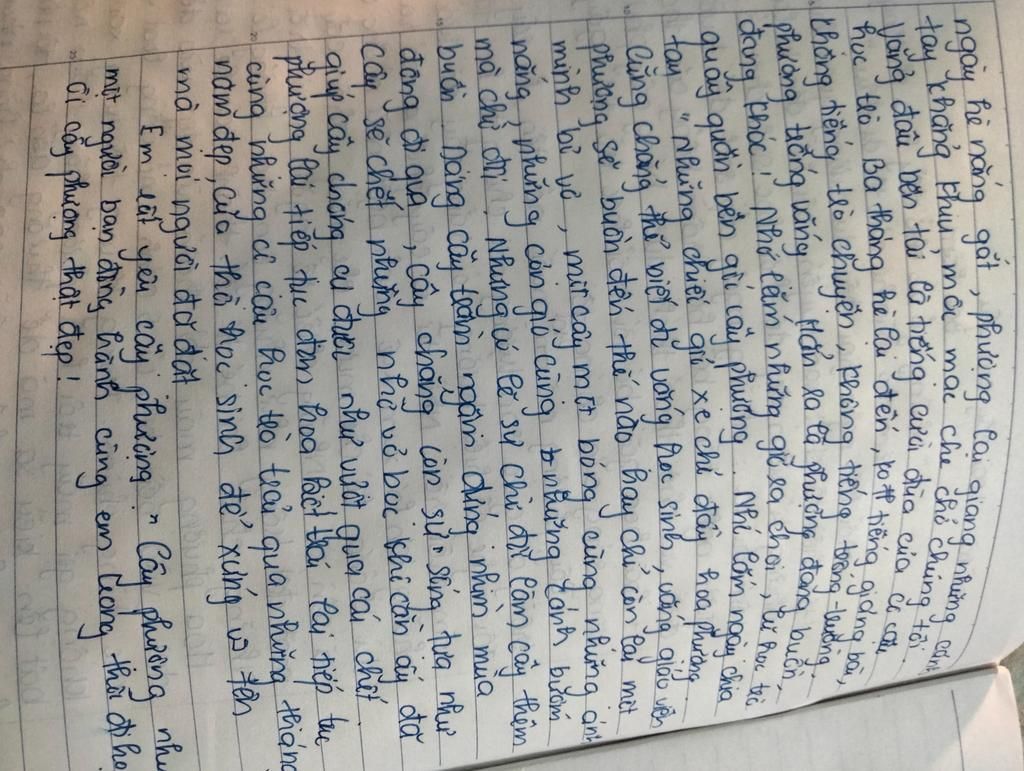 ngày hè nắng gắt, phượng lại giang những cánh
tay khẳng khiu mốc mác che chở chúng tôi.
Vẳng đâu bên tai là tiếng cười đùa của cô cậu
học trò. Ba tháng hè lại đến, ko tiếng giảng bài,
không tiếng trò chuyện, không tiếng trống trường,
phượng trống vắng. Hẳn ra là phượng đang buồn,
đang khóc! Nhớ lắm những giờ ra chơi, lũ học trò
quây quần bên gốc cây phượng. Nhớ lắm ngày chia
tay "những chiếc giỏ xe chở đầy hoa phượng
Cũng chẳng thể biết đi vắng học sinh, vắng giáo viên
phượng sẽ buồn đến thế nào hay chỉ còn lại một
mình bơ vơ, một cây một bóng cùng những ánh
nắng, phượng còn gió cùng những cánh bướm
mà chỉ đi. Nhưng có lẽ sự chỉ để làm cây thêm
buồn. Dáng cây trầm ngâm đứng nhìn mùa
đông đi qua, cây chẳng còn sức sống tựa như
cây sẽ chết nhưng nhờ vỏ bọc khi còn ấy đã
giúp cây chống cự dưới như vượt qua cái chết.
phượng lại tiếp tục đơm hoa kết trái lại tiếp tục
cùng những cô cậu học trò trải qua những tháng
năm đẹp của thời học sinh để xứng với tên
mà mọi người đã đặt
Em rất yêu cây phượng. Cây phượng như
một người bạn đồng hành cùng em trong thời đi học
Ôi cây phượng thật đẹp!